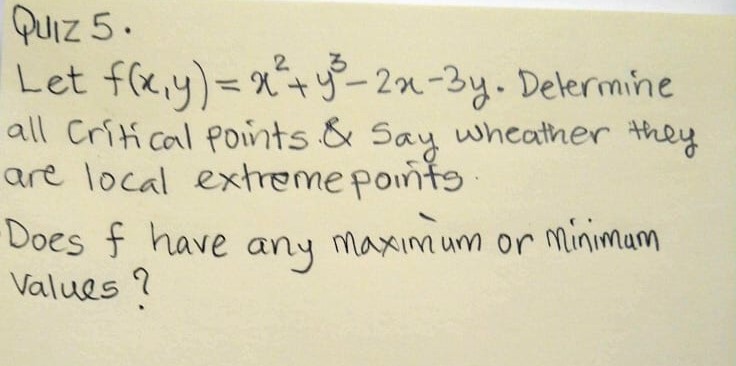 QUIZ 5.
Let f(x,y) = x²+y³-2x-3y. Determine
all Critical points & Say wheather they
are local extreme points.
Does f have any maximum or minimum
Values?